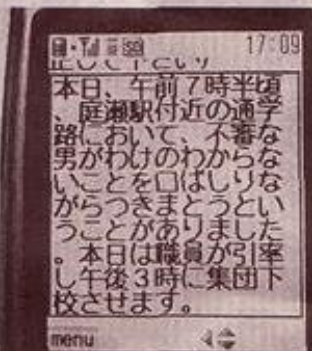 17:09
本日、午前7時半頃
、庭瀬駅付近の通学
路において、不審な
男がわけのわからな
いことを口ばしりな
がらつきまとうとい
うことがありました
。本日は職員が引率
し午後3時に集団下
校させます。
menu